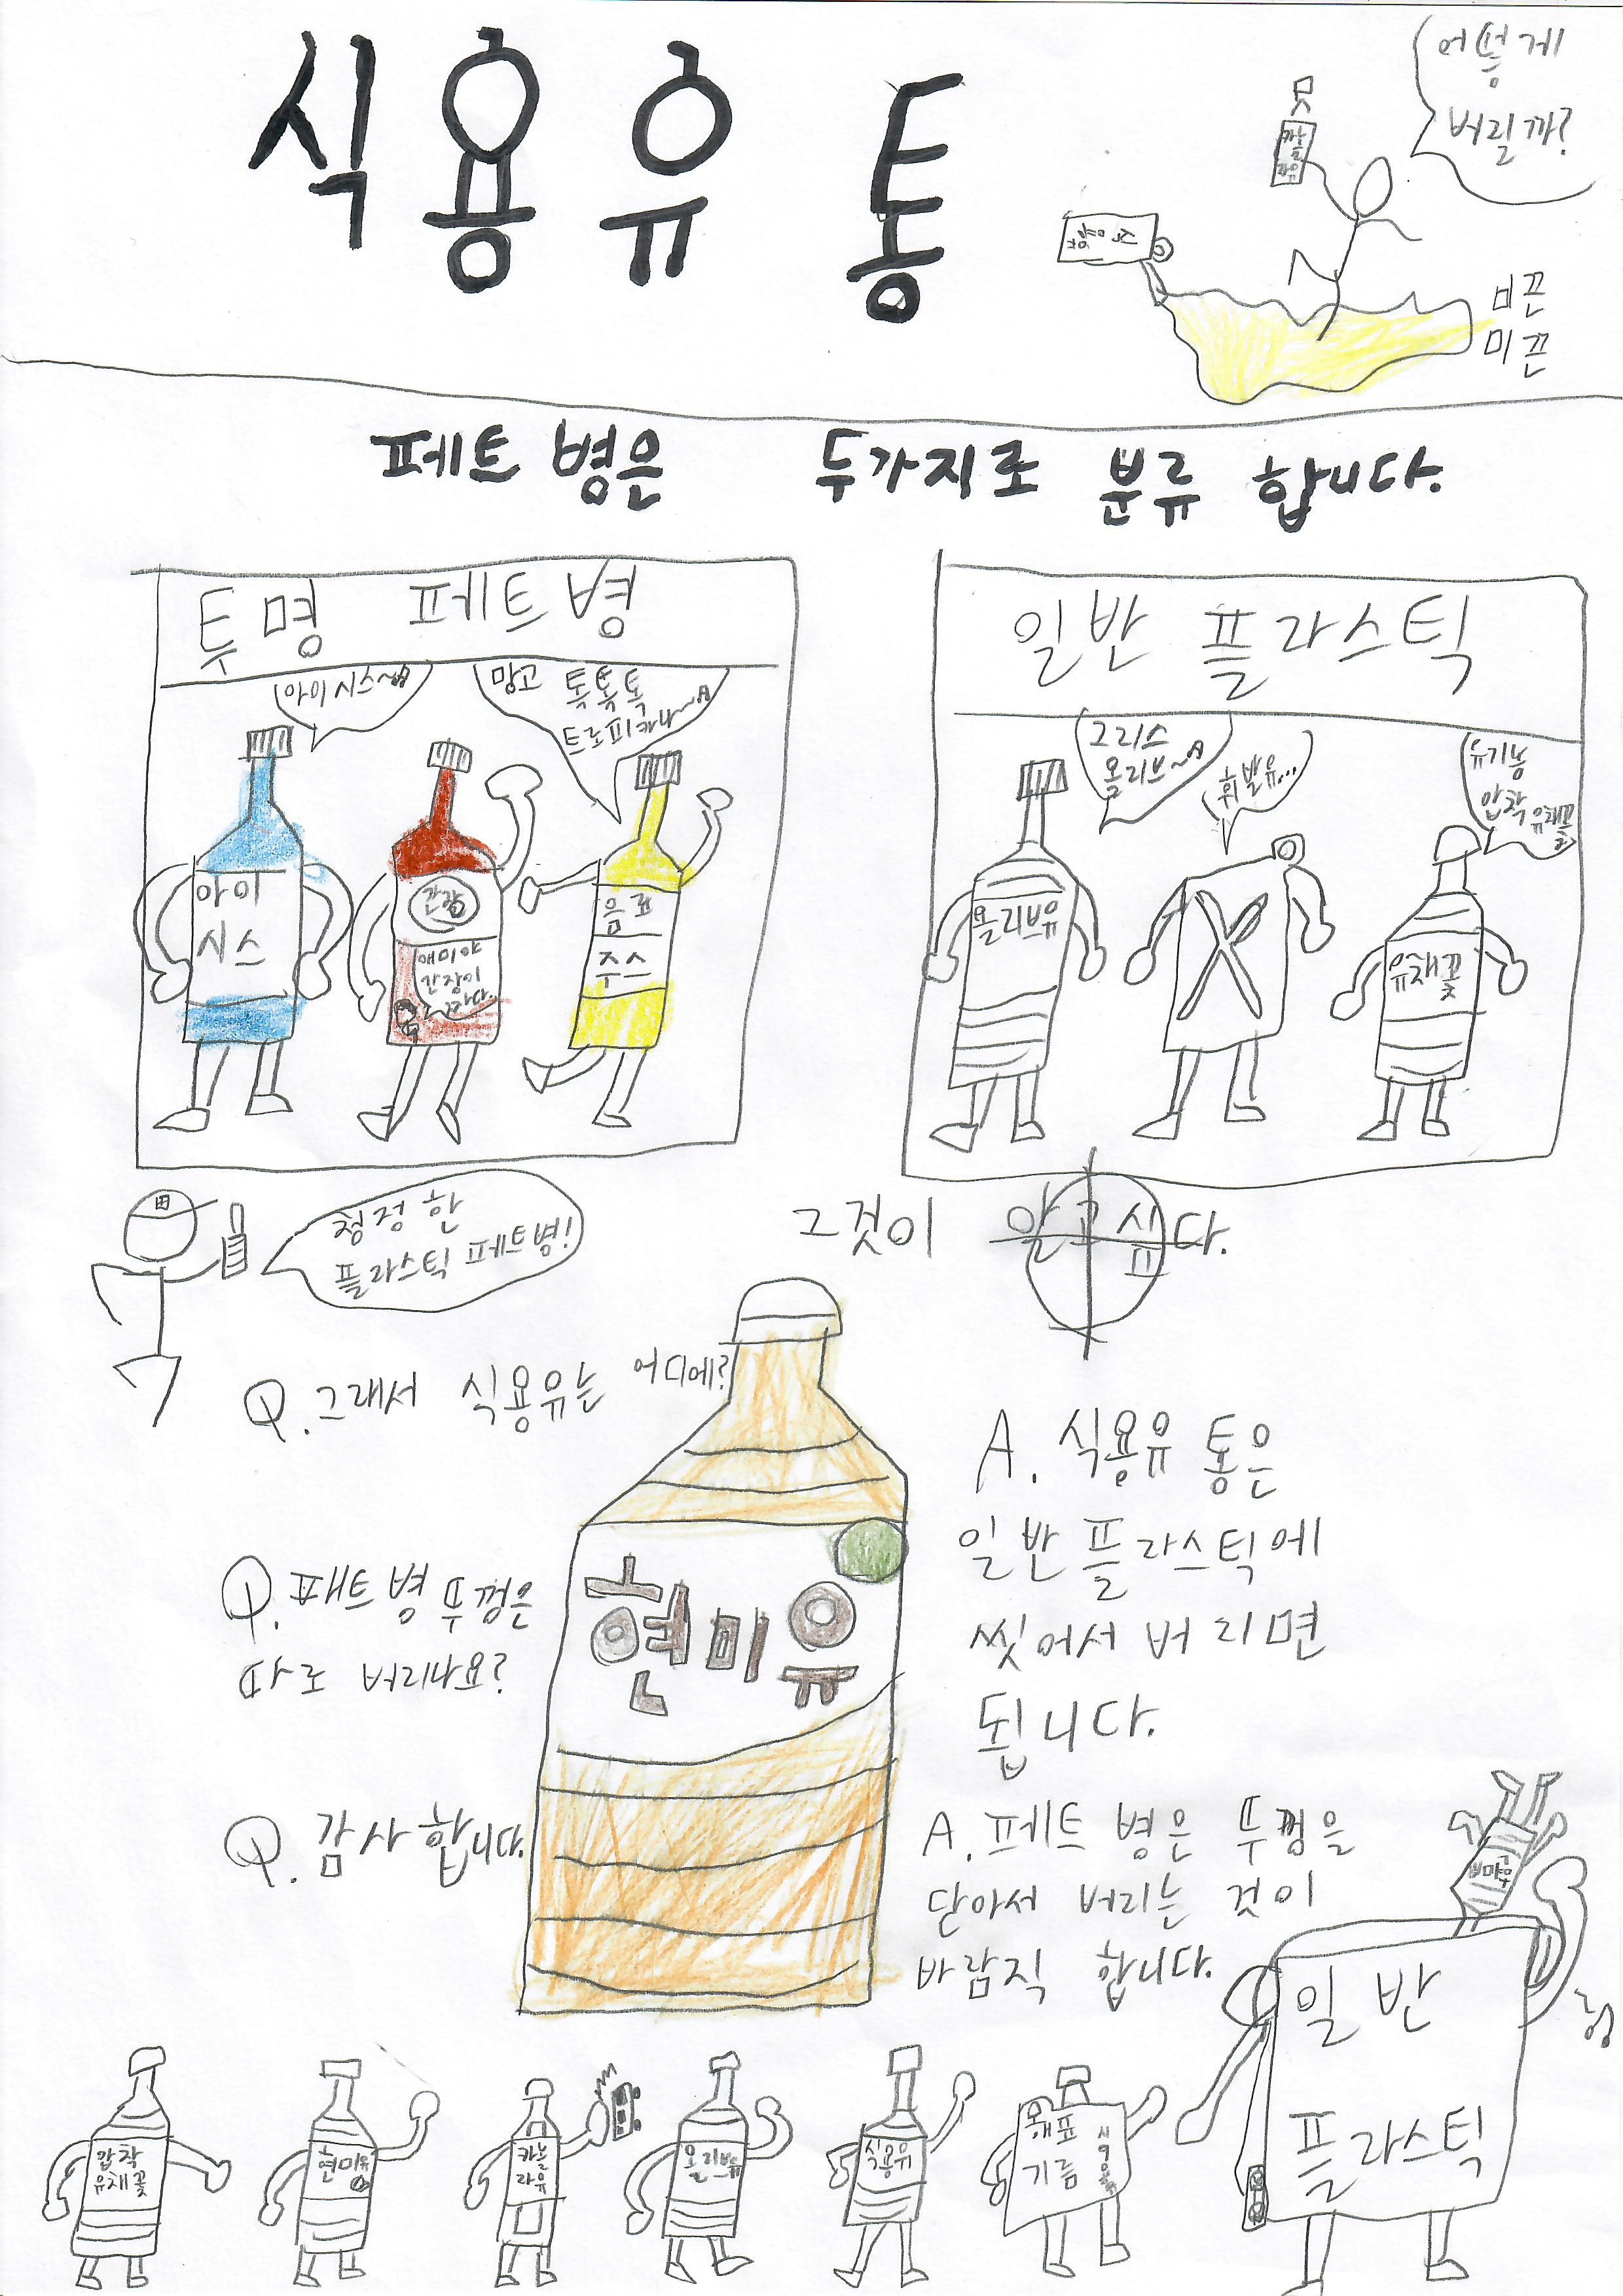 식용유 통
어떻게
버릴까?
식용유
미끈
미끈
페트 병은 두가지로 분류 합니다.
투명 페트 병
아이시스~
망고 톡톡톡
트로피카나~
아이
시스
간장
간장이
음료
주스
일반 플라스틱
그리스
올리브~
휘발유...
유기농
압착 유채꽃
올리브유
유채꽃
청정 한
플라스틱 페트병!
그것이 알고싶다.
Q. 그래서 식용유는 어디에?
A. 식용유 통은
일반 플라스틱에
씻어서 버리면
됩니다.
현미유
Q. 패트 병 뚜껑은
따로 버리나요?
A. 페트 병은 뚜껑을
닫아서 버리는 것이
바람직 합니다.
Q. 감사 합니다.
일반
플라스틱
압착
유채꽃
현미유
카놀
라유
올리브유
식용유
해표
기름
식용유